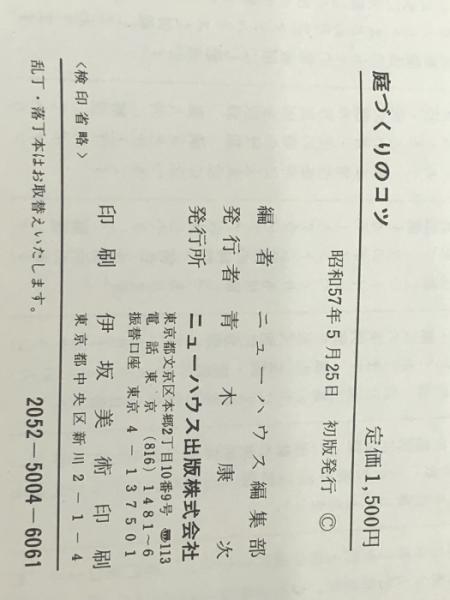 庭づくりのコツ
定価1,500円
昭和57年5月25日 初版発行 ©
編者 ニューハウス編集部
発行者 青木康次
発行所 ニューハウス出版株式会社
東京都文京区本郷2丁目10番9号 〠113
電話 東京 (816) 1481〜6
振替口座 東京 4-137501
印刷 伊坂美術印刷
東京都中央区新川2-1-4
〈検印省略〉
乱丁・落丁本はお取替えいたします。
2052-5004-6061